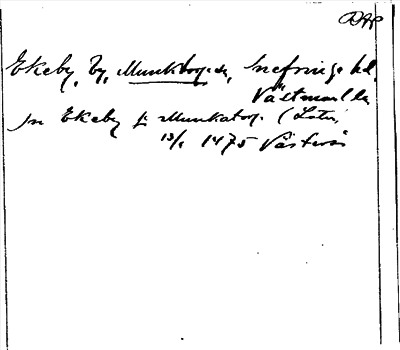 DAP
Ekeby, by, Munktorps sn, Snefringe hd,
Västmanl. l.
jn Ekeby j Munkatorp (
13/1 1475 Västerås